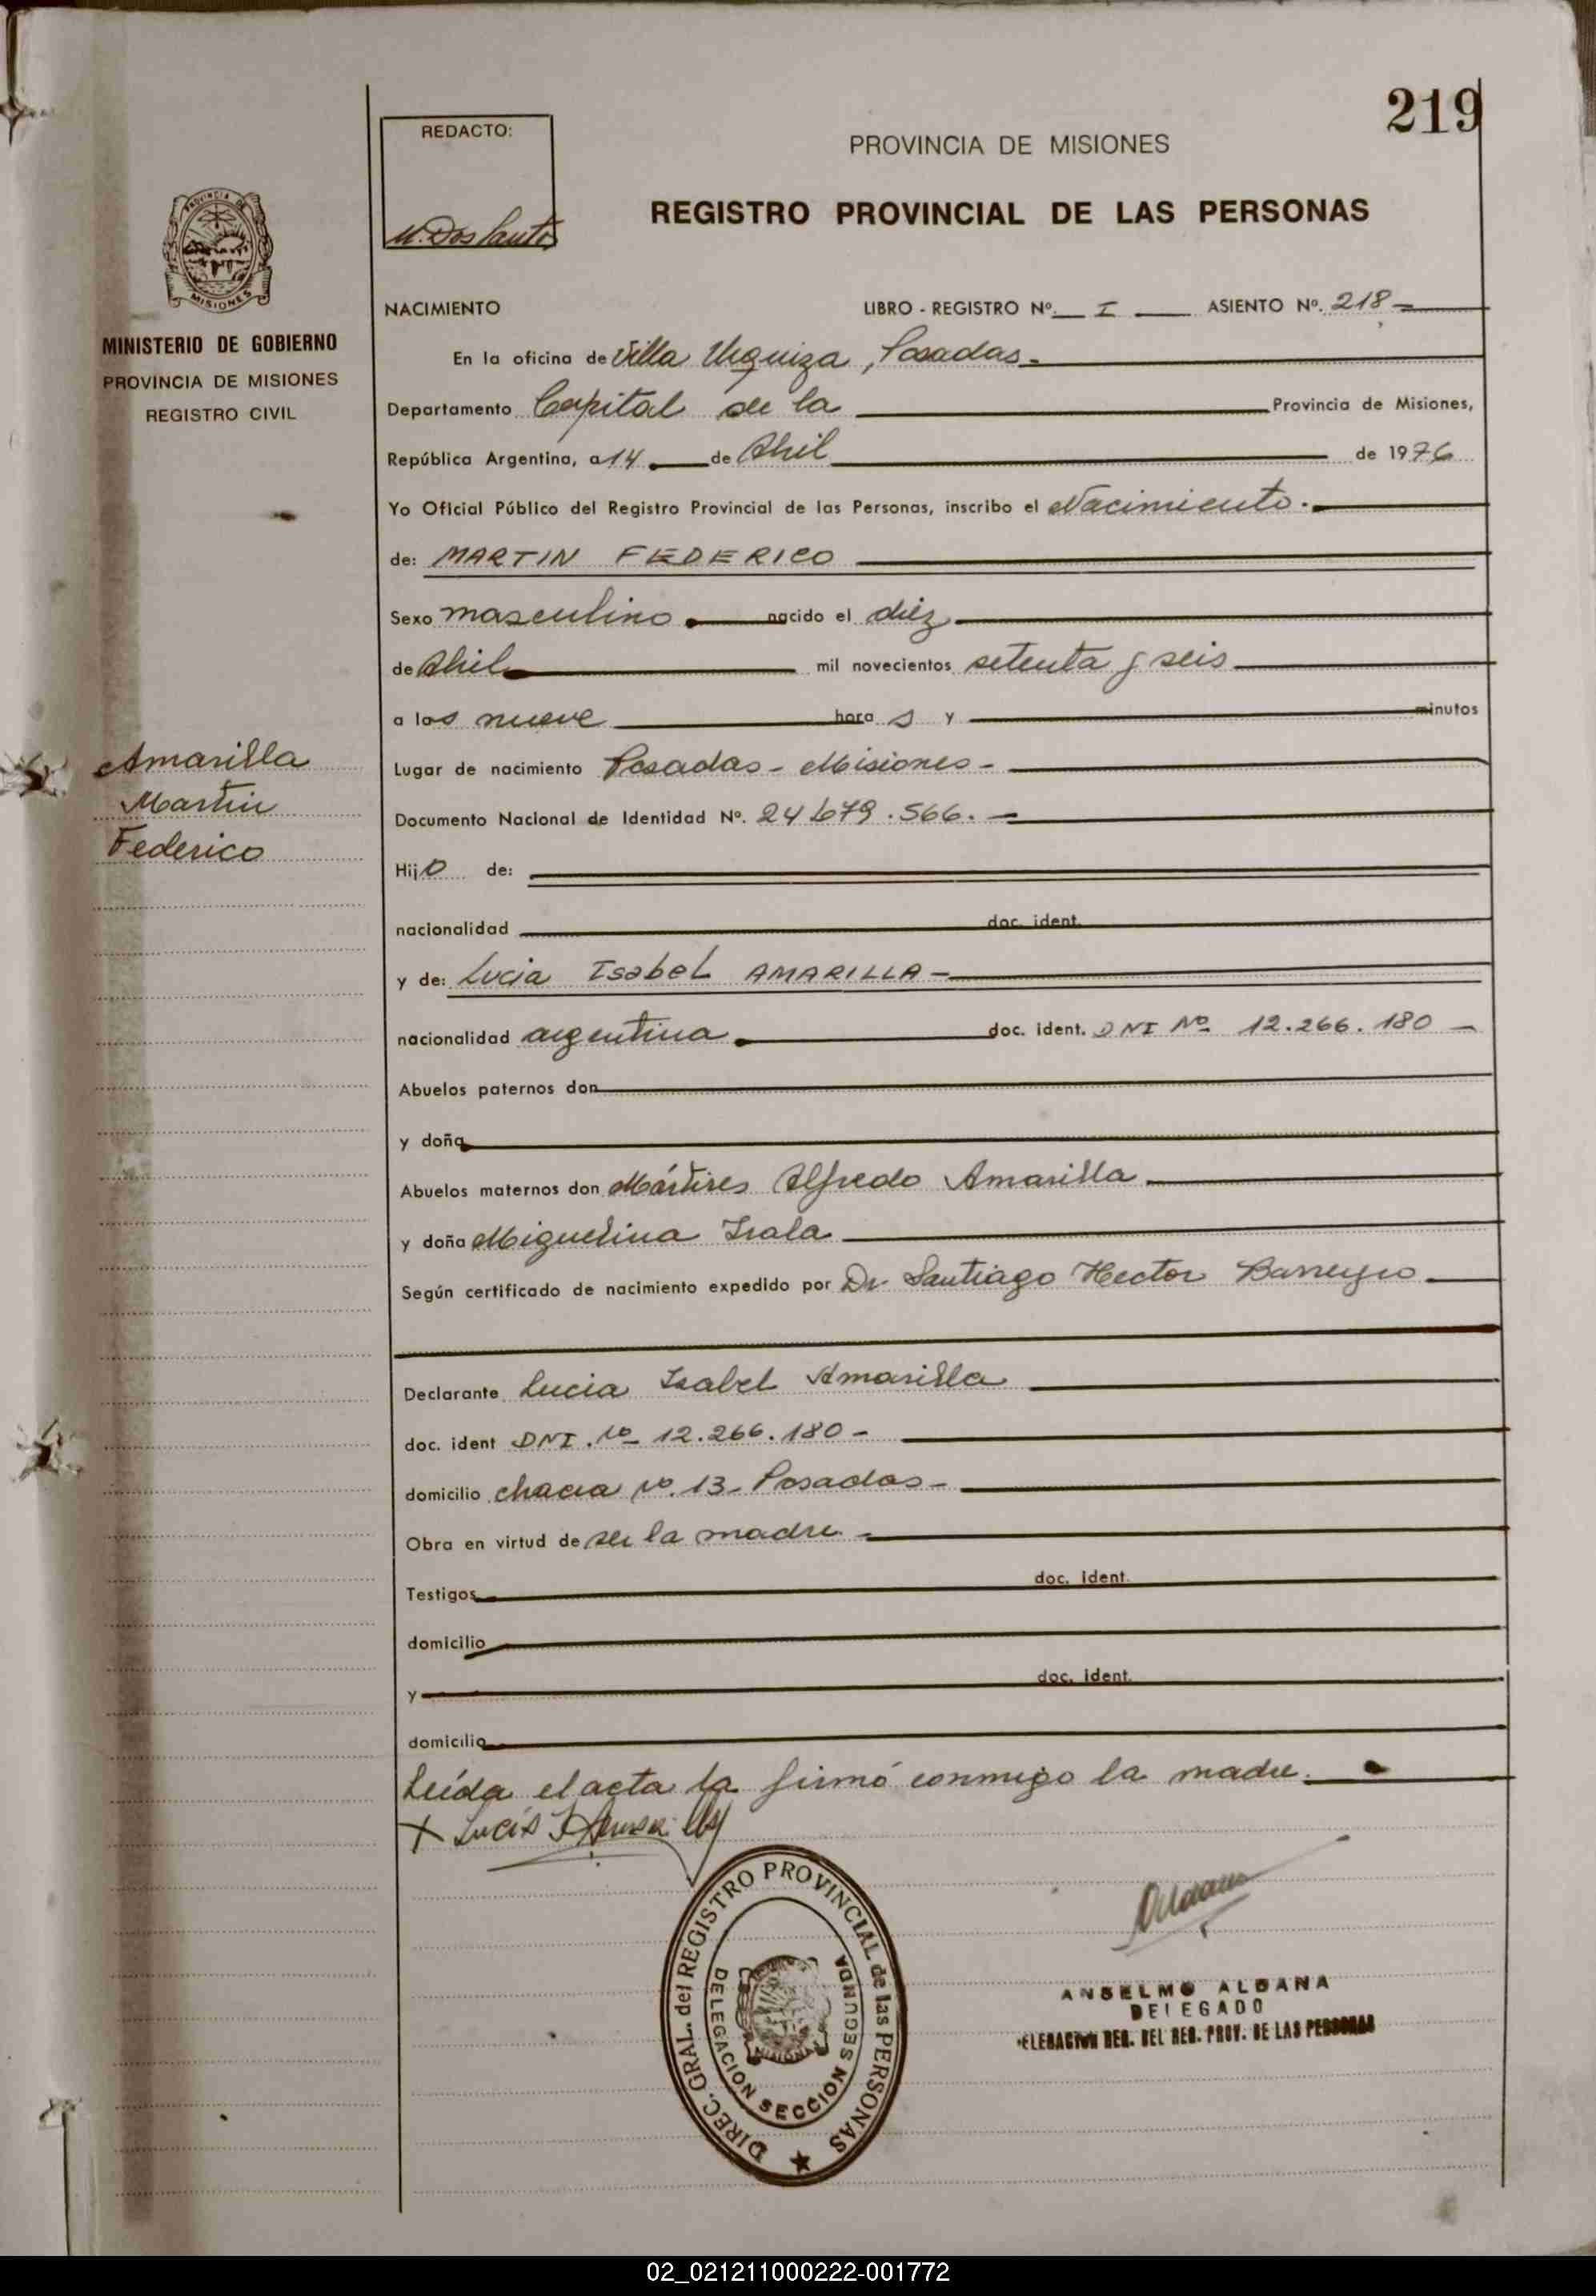 219
REDACTO:
M. Dos Santos
PROVINCIA DE MISIONES
REGISTRO PROVINCIAL DE LAS PERSONAS
PROVINCIA DE
MISIONES
MINISTERIO DE GOBIERNO
PROVINCIA DE MISIONES
REGISTRO CIVIL
NACIMIENTO LIBRO - REGISTRO Nº. I ASIENTO Nº. 218-
En la oficina de Villa Urquiza, Posadas-
Departamento Capital de la Provincia de Misiones,
República Argentina, a 14 de Abril de 1976
Yo Oficial Público del Registro Provincial de las Personas, inscribo el Nacimiento.
de: MARTIN FEDERICO
Sexo masculino nacido el diez
de Abril mil novecientos setenta y seis
a las nueve horas y minutos
Amarilla
Martin
Federico
Lugar de nacimiento Posadas - Misiones -
Documento Nacional de Identidad Nº. 24.679.566.-
Hijo de:
nacionalidad doc. ident.
y de: Lucia Isabel AMARILLA -
nacionalidad argentina doc. ident. DNI Nº 12.266.180 -
Abuelos paternos don
y doña
Abuelos maternos don Mártires Alfredo Amarilla
y doña Miguelina Irala
Según certificado de nacimiento expedido por Dr Santiago Hector Barreyro
Declarante Lucia Isabel Amarilla
doc. ident DNI. Nº 12.266.180 -
domicilio chacra Nº. 13- Posadas-
Obra en virtud de ser la madre. -
Testigos doc. ident.
domicilio
y doc. ident.
domicilio
Leída el acta la firmó conmigo la madre.
DIREC. GRAL. del REGISTRO PROVINCIAL de las PERSONAS
DELEGACION SECCION SEGUNDA
MISIONES
ANSELMO ALDANA
DELEGADO
DELEGACION REG. DEL REG. PROV. DE LAS PERSONAS
02_021211000222-001772